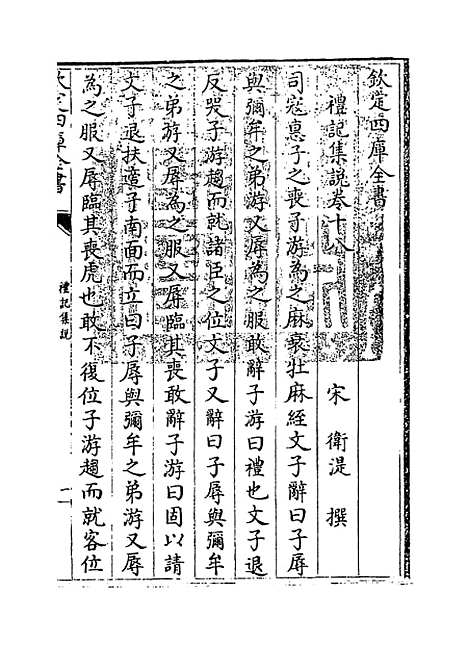 欽定四庫全書
禮記集說卷十八
宋 衛湜 撰
司寇惠子之喪子游為之麻衰牡麻絰文子辭曰子辱
與彌牟之弟游又辱為之服敢辭子游曰禮也文子退
反哭子游趨而就諸臣之位文子又辭曰子辱與彌牟
之弟游又辱為之服又辱臨其喪敢辭子游曰固以請
文子退扶適子南面而立曰子辱與彌牟之弟游又辱
為之服又辱臨其喪虎也敢不復位子游趨而就客位
欽定四庫全書
禮記集說
一